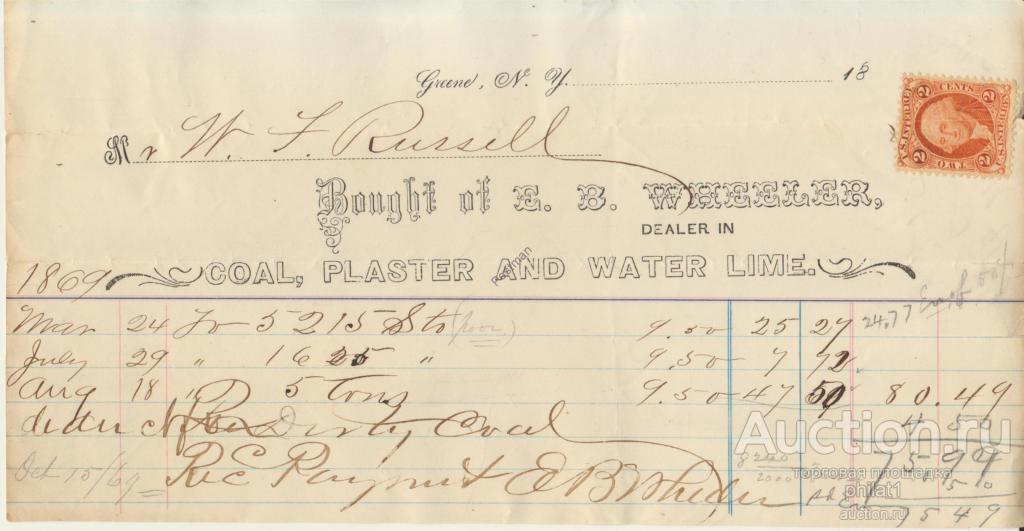 Greene, N. Y. 18
U.S. INTER. REV.
2 CENTS 2
2 TWO 2
Mr W. F. Russell
Bought of E. B. WHEELER,
DEALER IN
COAL, PLASTER AND WATER LIME.
1869
Mar 24 To 5215 Sto (poor.) 9.50 25 27 24.77
July 29 " 1625 " 9.50 7 72
Aug 18 " 5 tons 9.50 47 50 80.49
deduc Dirty Coal 4 50
75.99
Oct 15/69 Rec Payment E B Wheeler 2000 50
7549
Auction.ru
торговая площадка
philat1
auction.ru